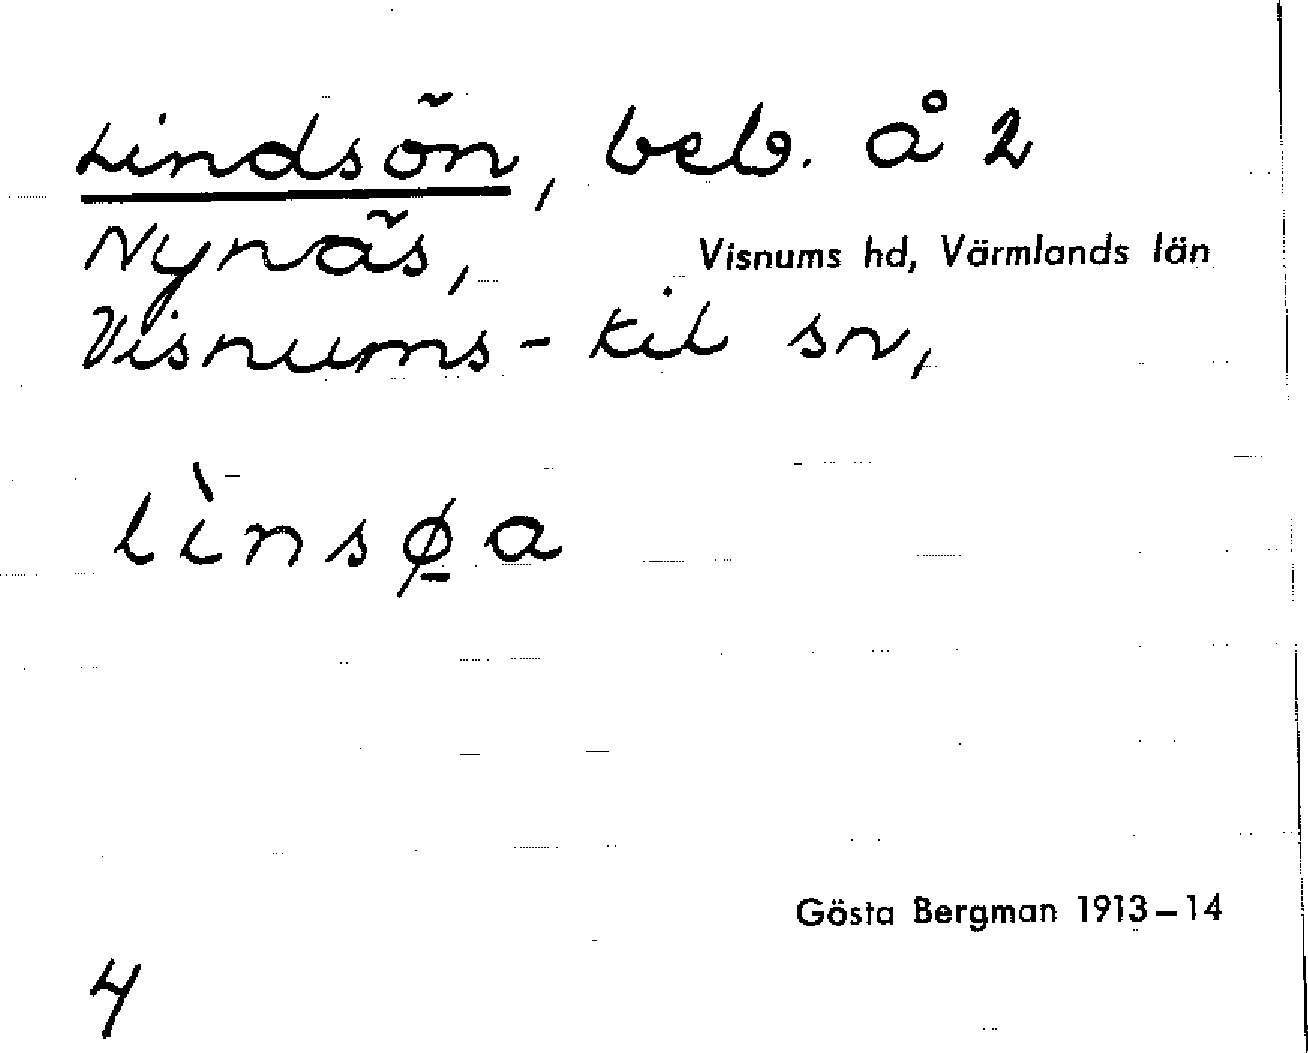 Lindsön, beb. å 2
Nynäs,
Visnums hd, Värmlands län
Visnums-Kil sn,
lìnsø̱a
Gösta Bergman 1913–14
4